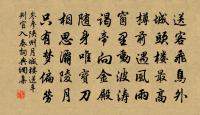 送客飛鳥外
城頭樓最高
樽前遇風雨
窗裏動波濤
謁帝向金殿
隨身唯寶刀
相思灞陵月
只有夢偏勞
岑參陝州月城樓送辛
判官入奏詞典網集